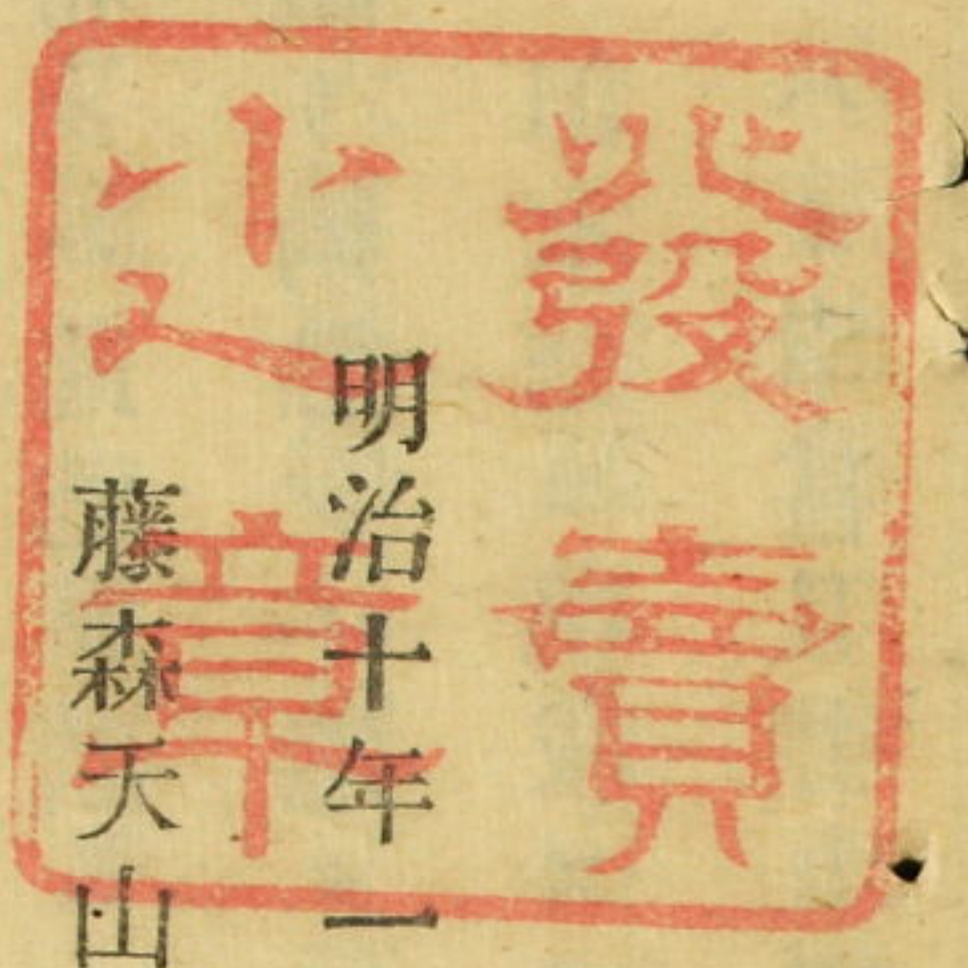 發賣
之章
明治十年一
藤森天山